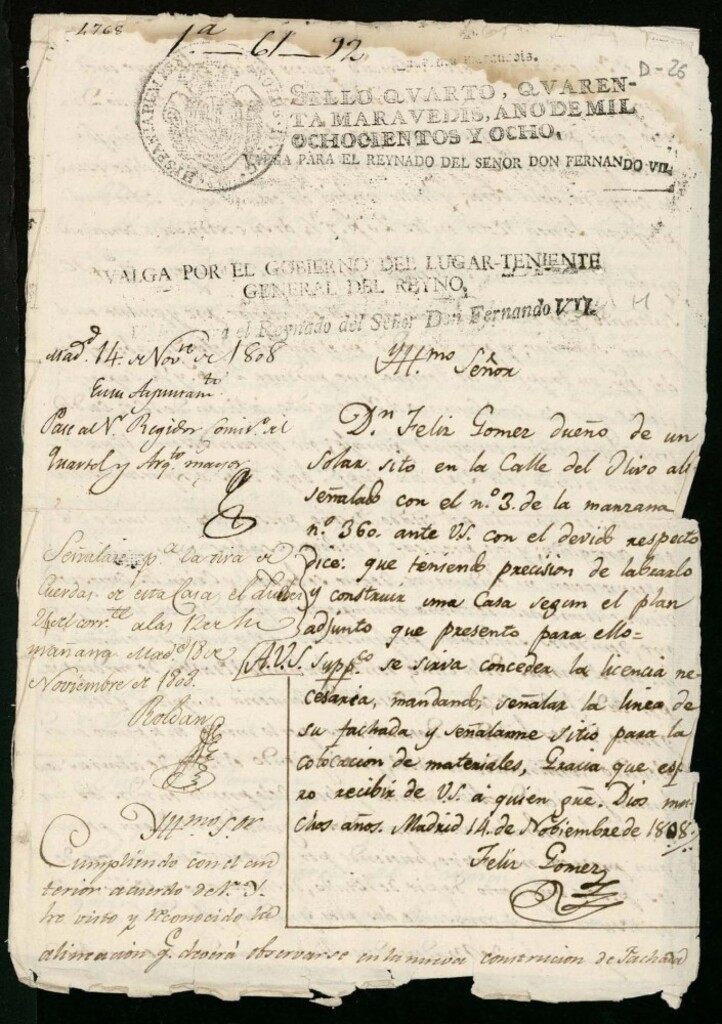 1.768
1ª-61-92
D-26
HISPANIARUM
SELLO QVARTO, QVAREN-
TA MARAVEDIS, AÑO DE MIL
OCHOCIENTOS Y OCHO.
PARA EL REYNADO DEL SEÑOR DON FERNANDO VII.
VALGA POR EL GOBIERNO DEL LUGAR-TENIENTE
GENERAL DEL REYNO,
a el Reynado del Señor Don Fernando VII.
Madd. 14. de Novre. de 1808
En su Ayuntamto.
Pase al Sr. Regidor Comiso. del
Quartel y Arqto. mayor
Señalase pa. la tira de
Cuerdas de esta Casa el
21 del corrte. a las 12 de la
mañana Madd. 18 de
Noviembre de 1808.
Roldan
Yllmo. Sor
Cumpliendo con el an
terior acuerdo de V. Y.
he visto y reconocido la
alineacion q. deverá observarse en la nueva construcion de Fachada
Yllmo Señor
Dn. Feliz Gomez dueño de un
solar sito en la Calle del Olivo al
señalado con el nº 3. de la manzana
nº 360. ante V.S. con el devido respecto
dice: que teniendo precision de labrarlo
y construir una Casa segun el plan
adjunto que presento para ello-
A V.S. suppco. se sirva conceder la licencia ne
cesaria, mandando, señalar la linea de
su fachada y señalarme sitio para la
colocacion de materiales, Gracia que espe
ro recibir de V.S. á quien gue. Dios mu
chos años. Madrid 14. de Nobiembre de 1808.
Feliz Gomez